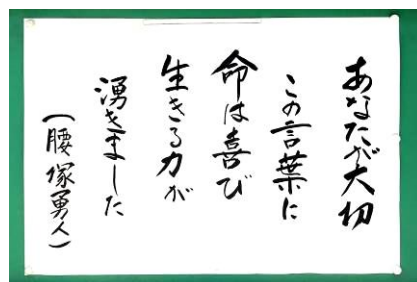 あなたが大切
この言葉に
命は喜び
生きる力が
湧きました
（腰塚勇人）